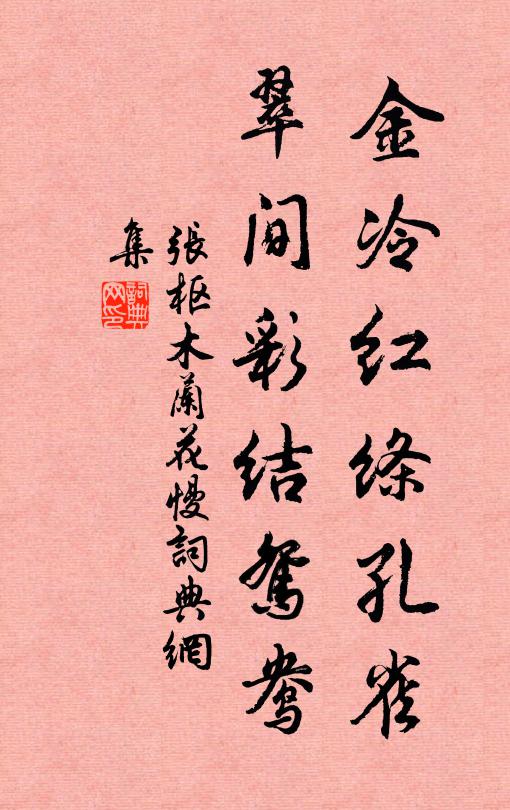 金冷红絛孔雀
翠间彩结鸳鸯
張枢木蘭花慢詞典網
集
詞典
网印